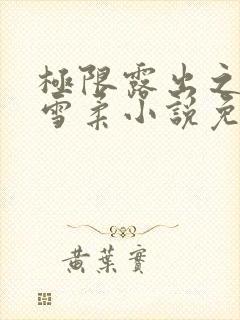 極限露出之
雪柔小説免
黄葉實